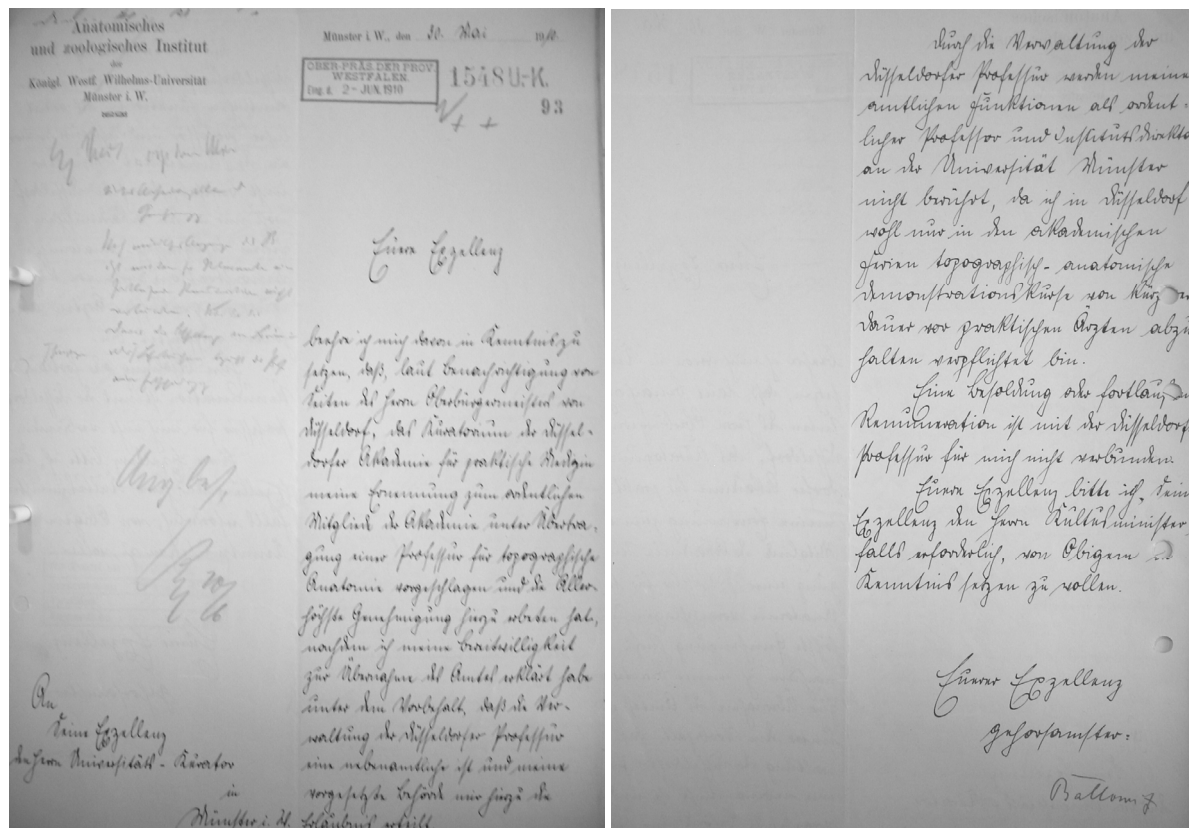 Anatomisches
und zoologisches Institut
der
Königl. Westf. Wilhelms-Universität
Münster i. W.
Münster i. W., den 30. Mai 1910.
OBER-PRÄS. DER PROV.
WESTFALEN.
Eing. d. 2 - JUN. 1910
1548 U.-K.
93
Euere Exzellenz
beehre ich mich davon in Kenntnis zu
setzen, daß, laut Benachrichtigung von
Seiten des Herrn Oberbürgermeisters von
Düsseldorf, das Kuratorium der Düssel-
dorfer Akademie für praktische Medizin
meine Ernennung zum ordentlichen
Mitgliede der Akademie unter Übertra-
gung einer Professur für topographische
Anatomie vorgeschlagen und die Aller-
höchste Genehmigung hierzu erbeten hat,
nachdem ich meine Bereitwilligkeit
zur Übernahme des Amtes erklärt habe
unter dem Vorbehalt, daß die Ver-
waltung der Düsseldorfer Professur
eine nebenamtliche ist und meine
vorgesetzte Behörde mir hierzu die
Erlaubnis erteilt.
An
Seine Exzellenz
den Herrn Universitäts-Kurator
in
Münster i. W.
Durch die Verwaltung der
Düsseldorfer Professur werden meine
amtlichen Funktionen als ordent-
licher Professor und Institutsdirektor
an der Universität Münster
nicht berührt, da ich in Düsseldorf
wohl nur in den akademischen
Ferien topographisch-anatomische
Demonstrationskurse von kurzer
Dauer vor praktischen Ärzten abzu
halten verpflichtet bin.
Eine Besoldung oder fortlaufende
Remuneration ist mit der Düsseldorfer
Professur für mich nicht verbunden.
Euere Exzellenz bitte ich, Seine
Exzellenz den Herrn Kultusminister
falls erforderlich, von Obigem in
Kenntnis setzen zu wollen.
Euerer Exzellenz
gehorsamster:
Ballowitz